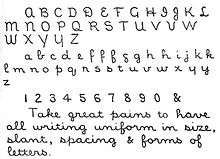 A B C D E F G H I J K L
M N O P Q R S T U V V W
W X Y Y Z
a b c d e f f f g g h i j k k
l m n o p q r s s t t u v w x y
z
1 2 3 4 5 6 7 8 9 0 &
Take great pains to have
all writing uniform in size,
slant, spacing & forms of
letters.